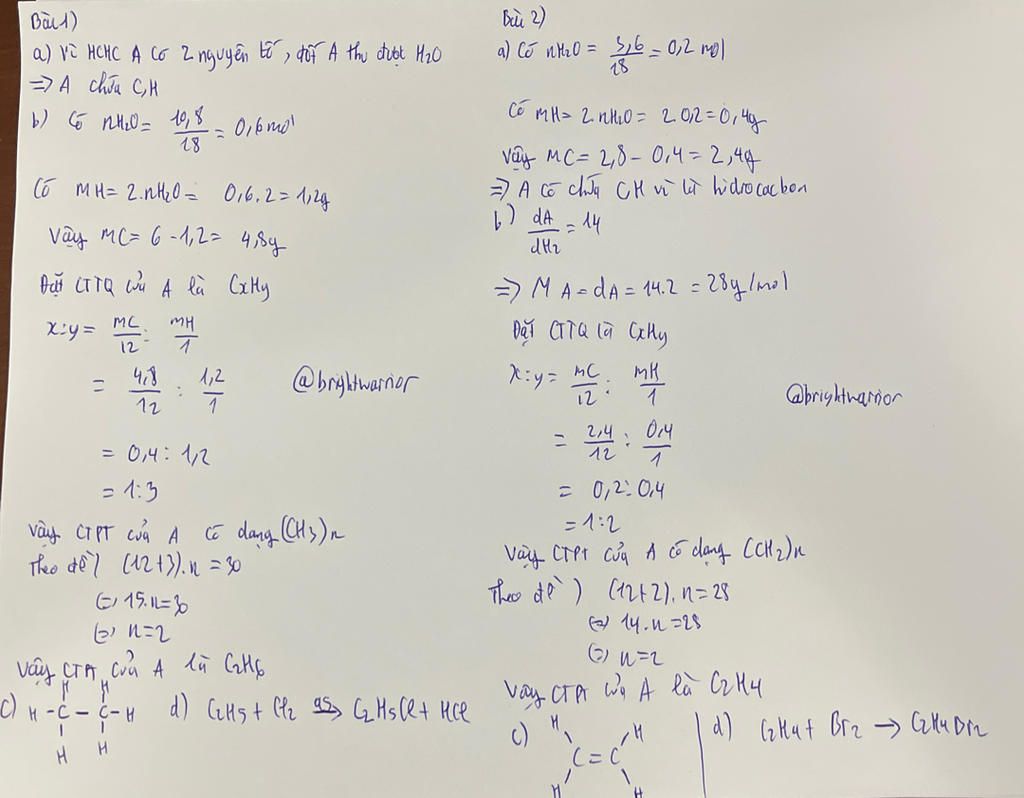 Bài 1)
a) Vì HCHC A có 2 nguyên tố, đốt A thu được H2O
=> A chứa C,H
b) Có nH2O = 10,8/18 = 0,6 mol
Có mH = 2.nH2O = 0,6.2 = 1,2g
Vậy mC = 6 - 1,2 = 4,8g
Đặt CTTQ của A là CxHy
x:y = mC/12 : mH/1
= 4,8/12 : 1,2/1
@brightwarrior
= 0,4 : 1,2
= 1:3
Vậy CTPT của A có dạng (CH3)n
Theo đề) (12+3).n = 30
(=) 15.n = 30
(=) n=2
Vậy CTPT của A là C2H6
c) H H
H - C - C - H
H H
d) C2H5 + Cl2 as-> C2H5Cl + HCl
Bài 2)
a) Có nH2O = 3,6/18 = 0,2 mol
Có mH = 2.nH2O = 2.0,2 = 0,4g
Vậy mC = 2,8 - 0,4 = 2,4g
=> A có chứa CH vì là hidrocacbon
b) dA/dH2 = 14
=> MA = dA = 14.2 = 28g/mol
Đặt CTTQ là CxHy
x:y = mC/12 : mH/1
@brightwarrior
= 2,4/12 : 0,4/1
= 0,2:0,4
= 1:2
Vậy CTPT của A có dạng (CH2)n
Theo đề) (12+2).n = 28
(=) 14.n = 28
(=) n=2
Vậy CTPT của A là C2H4
c) H H
C = C
H H
d) C2H4 + Br2 -> C2H4Br2